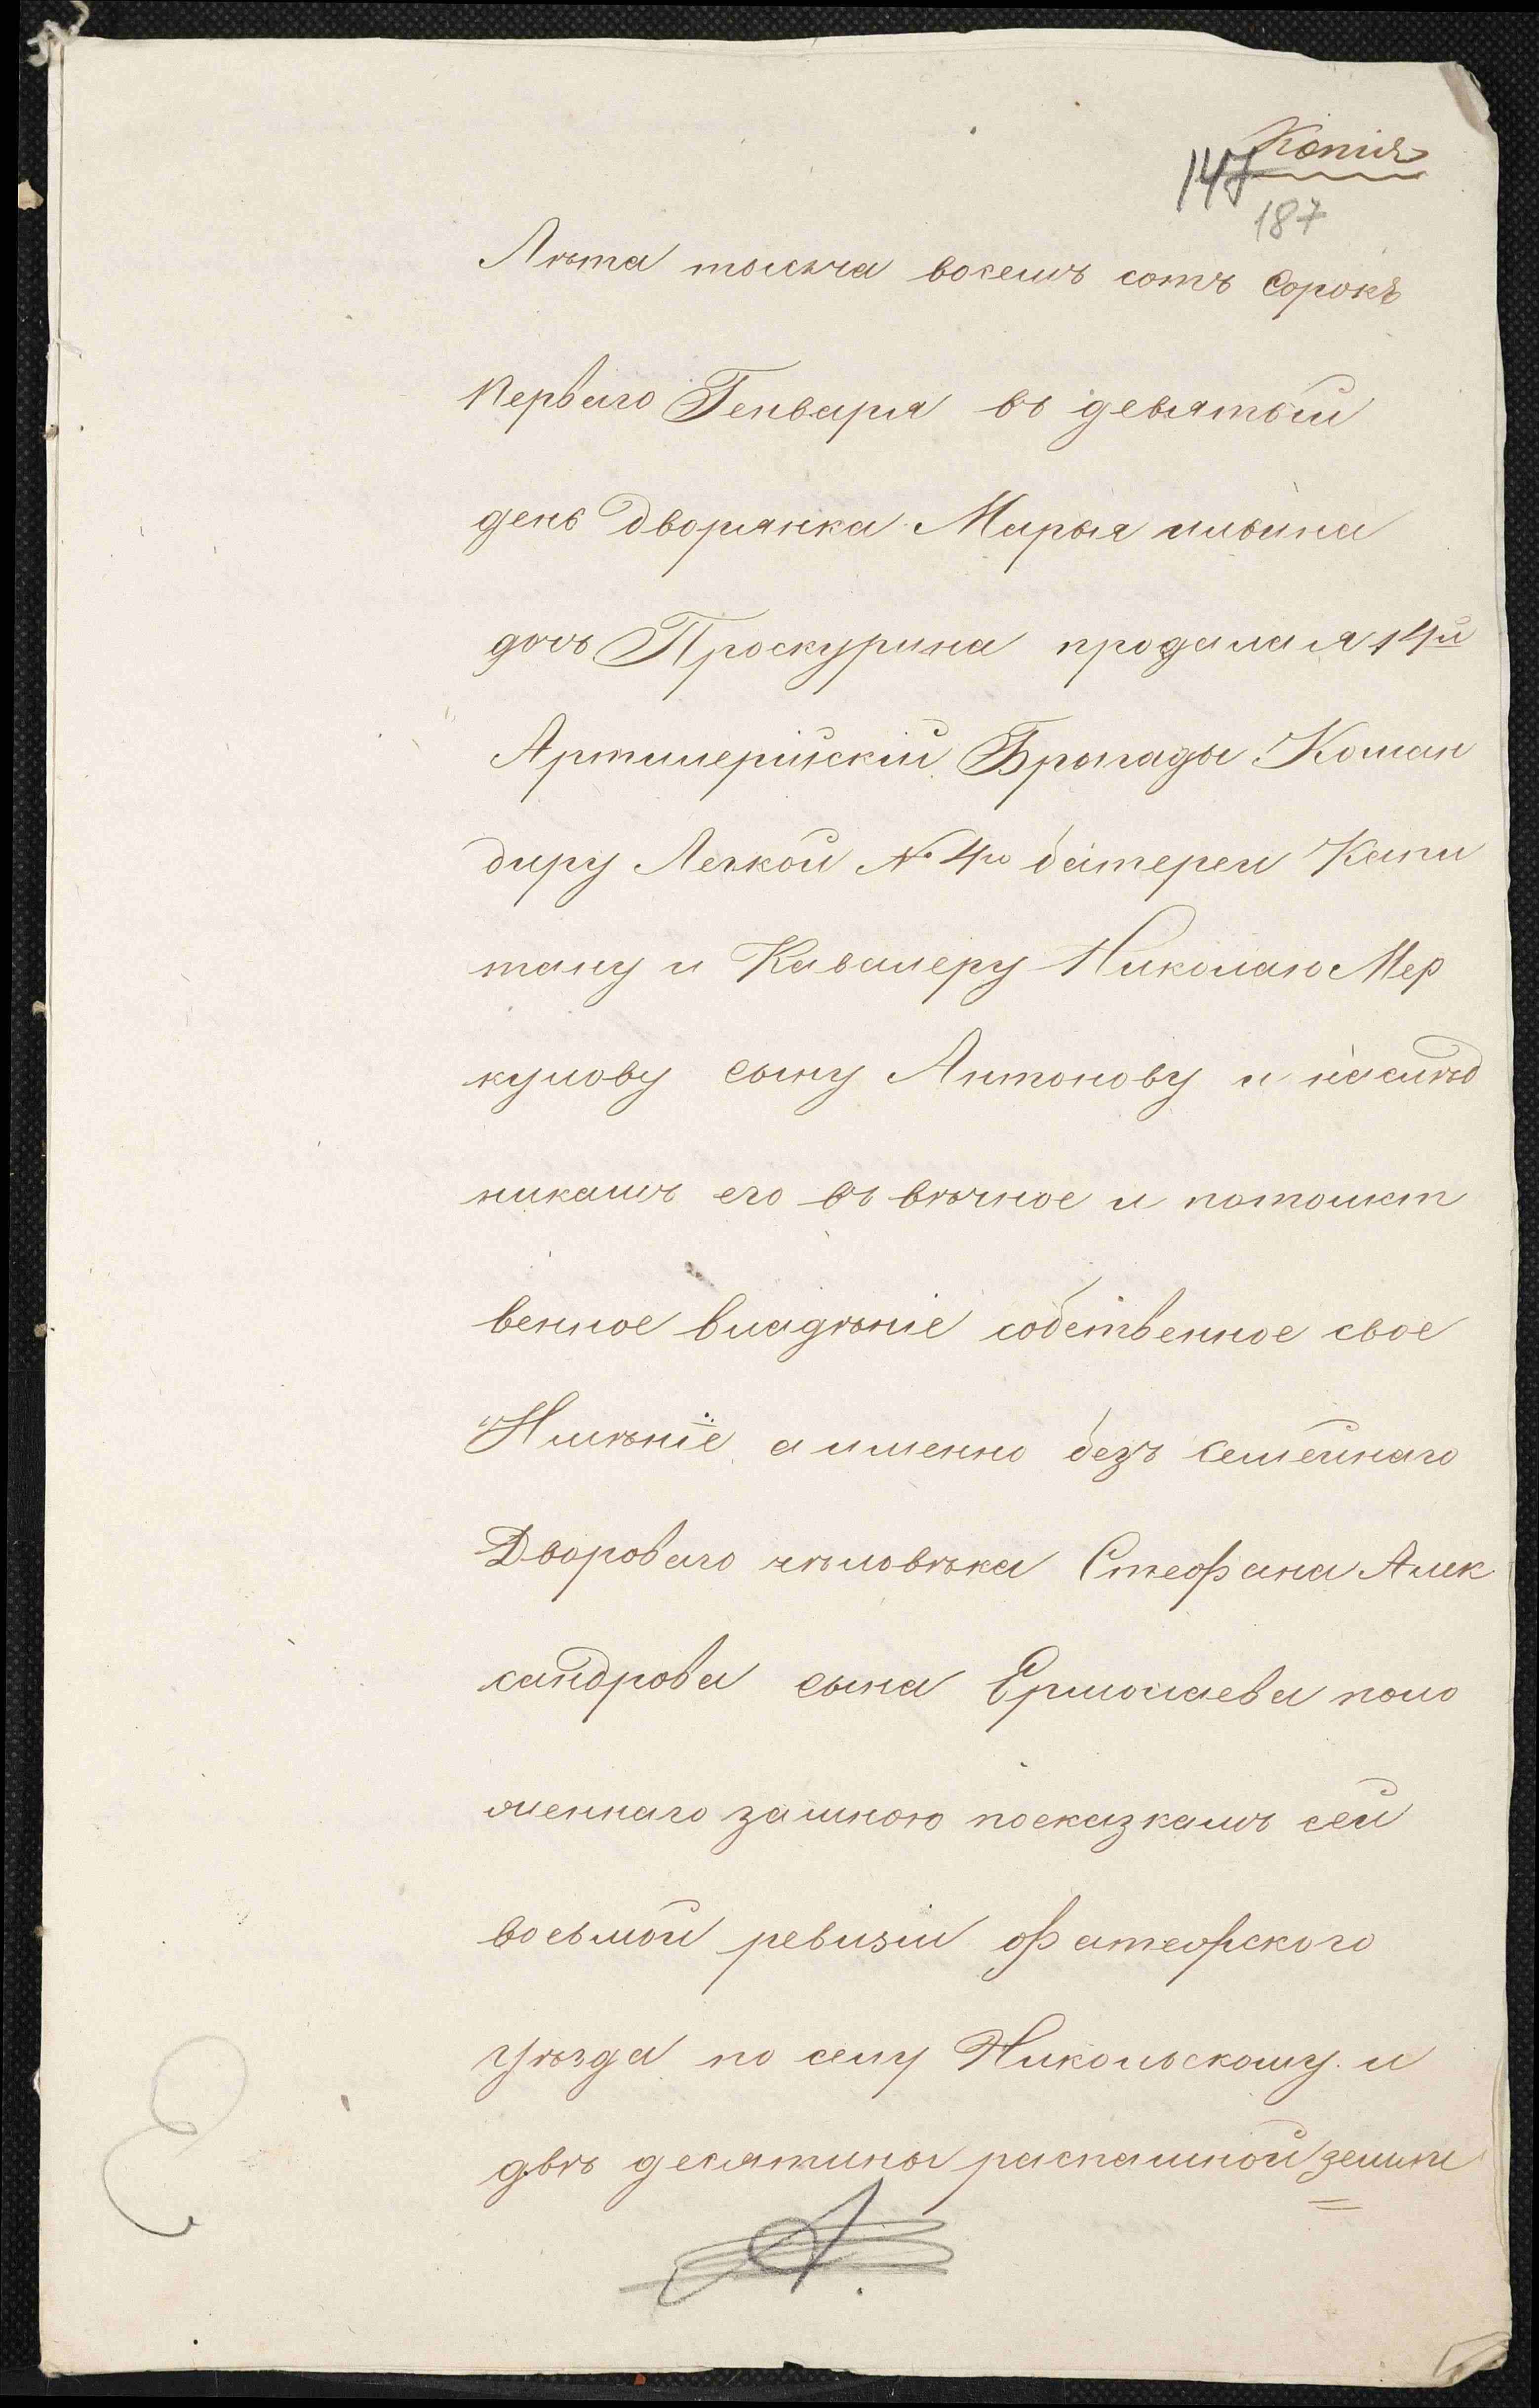 Копія
147
187
Лѣта тысяча восемъ сотъ сорокъ
Перваго Генваря въ девятый
день дворянка Марья ильина
дочь Проскурина продала я 14й
Артилерійскій Бригады Коман
диру Легкой № 4го батереи Капи
тану и Кавалеру Николаю Мер
кулову сыну Антонову и наслѣд
никамъ его въ вѣчное и потомст
венное владѣніе собственное свое
Имѣніе а именно безъ семейнаго
Двороваго чѣловѣка Стефана Алек
сандрова сына Ермолаева поло
женнаго замною посказкамъ сей
восьмой ревизіи Фатефского
уѣзда по селу Никольскому и
двѣ десятины распашной земли